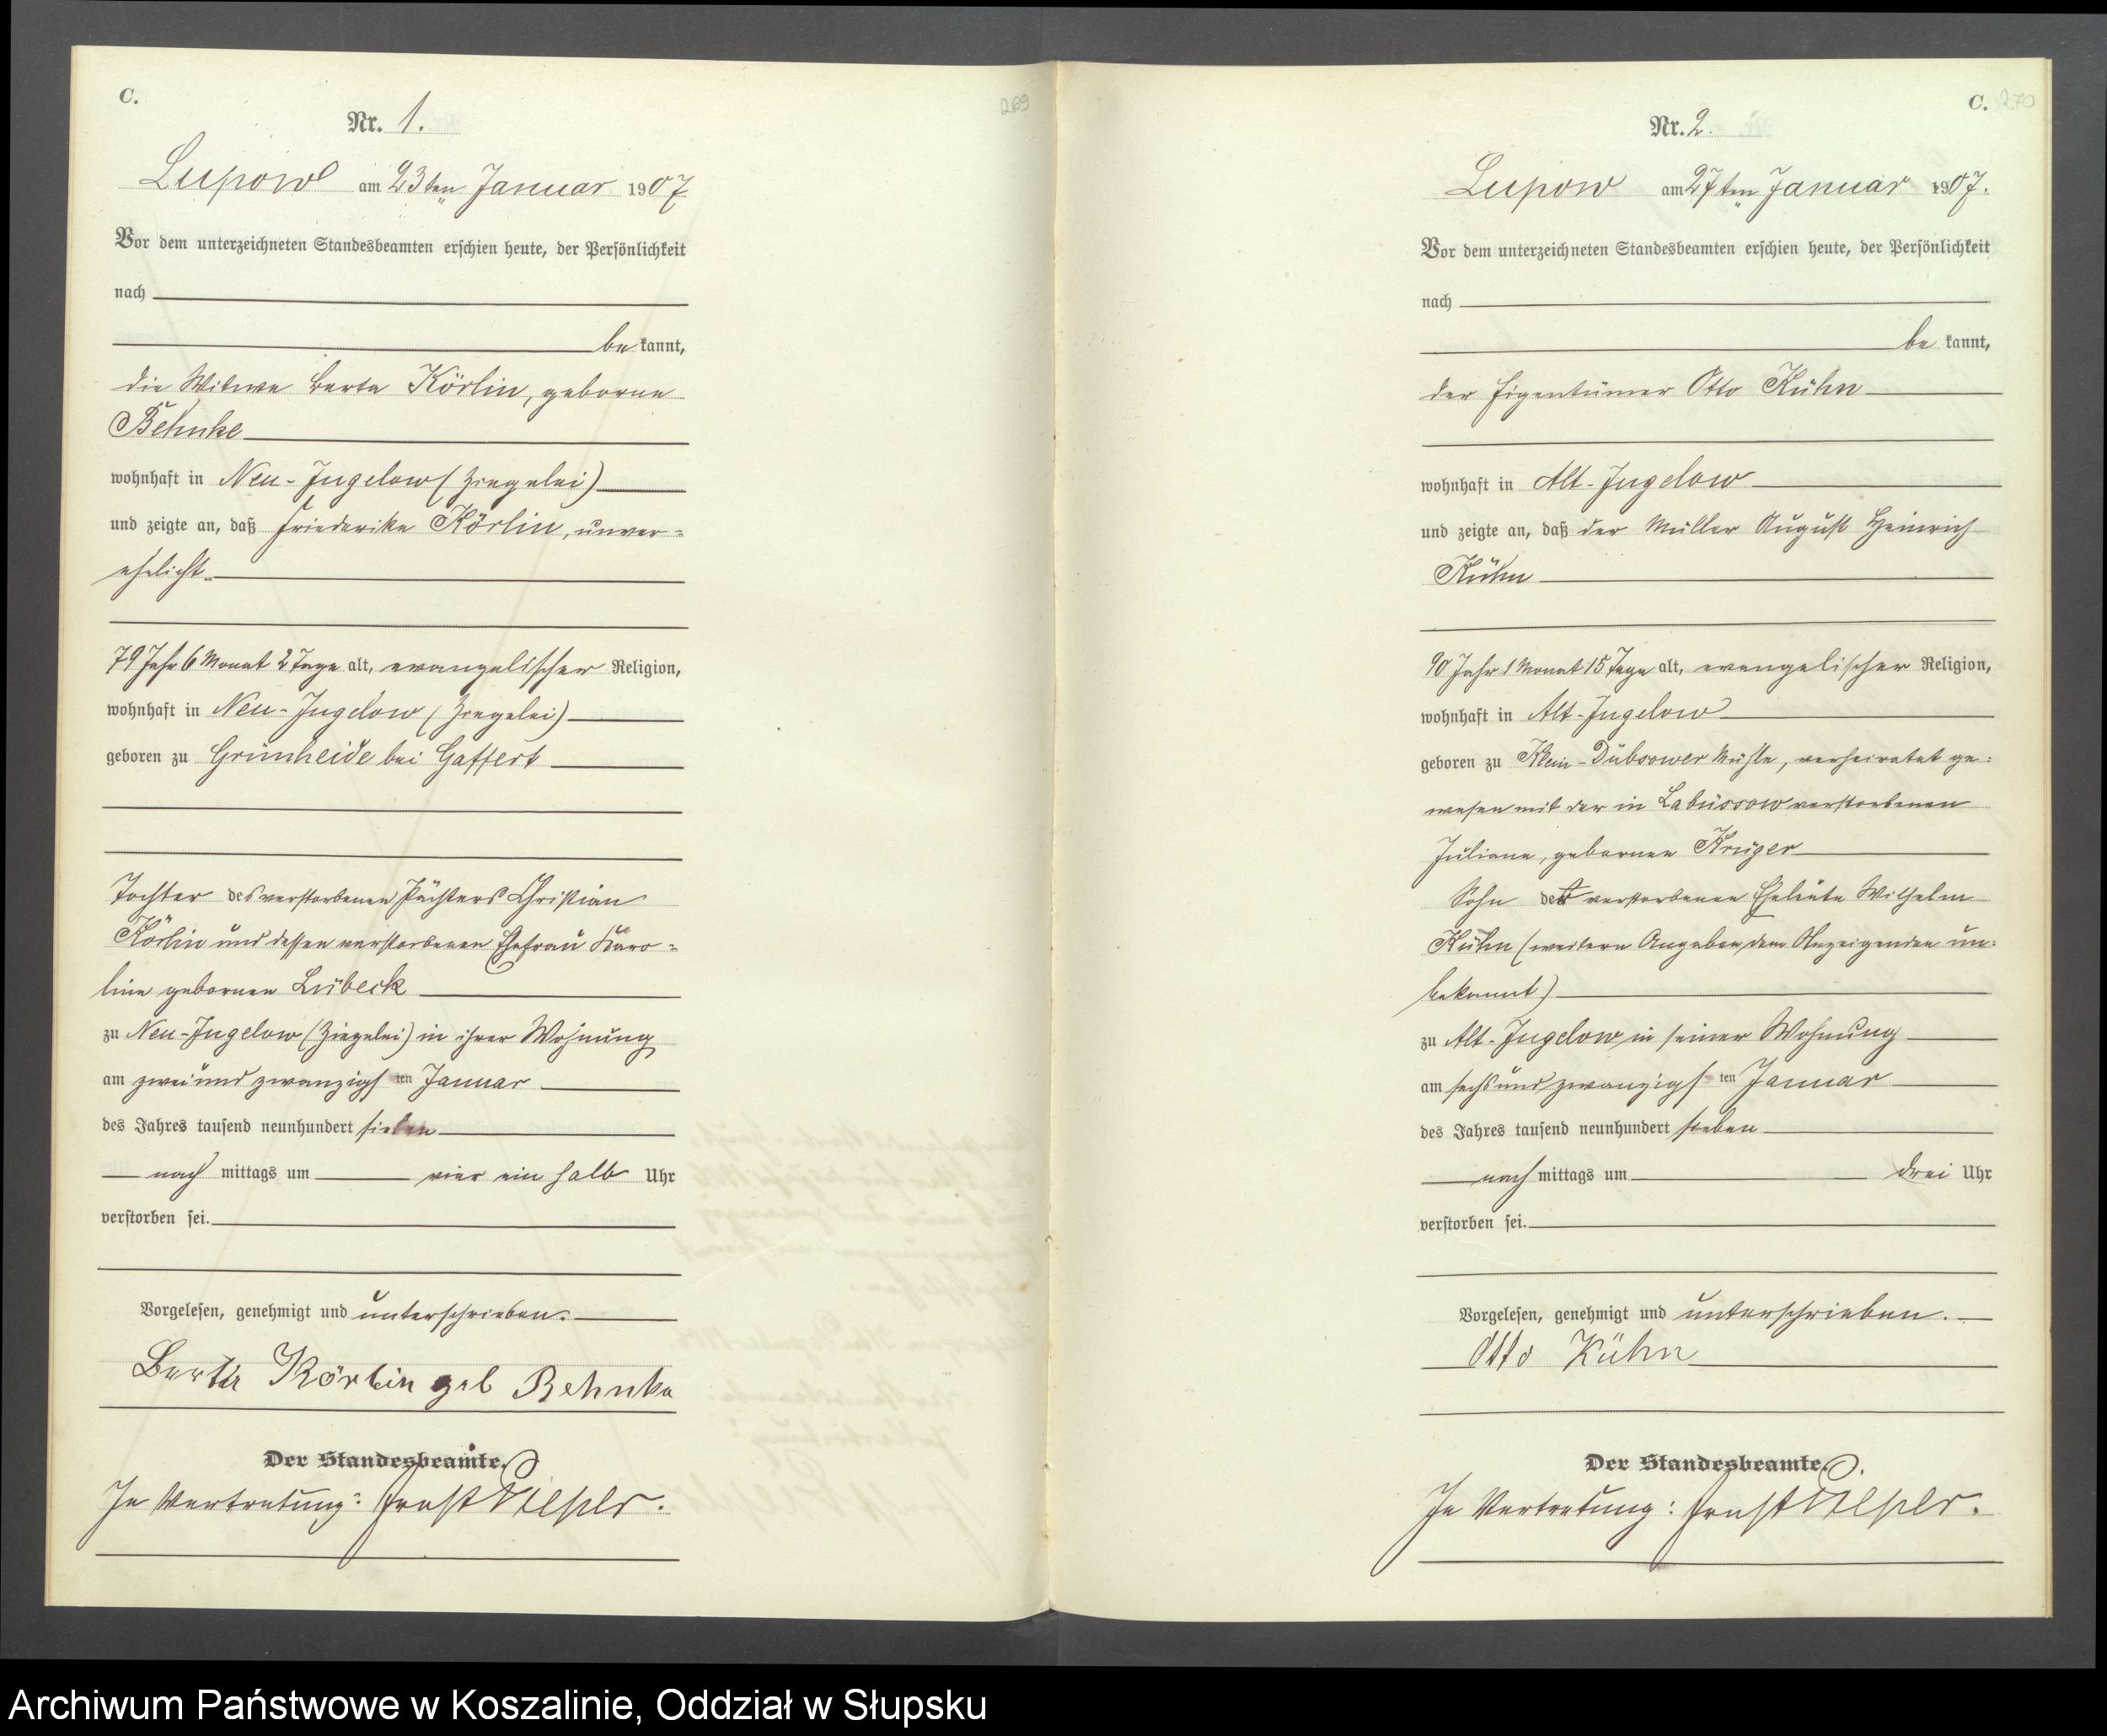 C.
269
Nr. 1.
Lupow am 23ten Januar 1907
Vor dem unterzeichneten Standesbeamten erschien heute, der Persönlichkeit
nach
be kannt,
die Witwe Berta Körlin, geborne
Behnke
wohnhaft in Neu-Jugelow (Ziegelei)
und zeigte an, daß Friederike Körlin, unver-
ehelicht
79 Jahr 6 Monat 2 Tage alt, evangelischer Religion,
wohnhaft in Neu-Jugelow (Ziegelei)
geboren zu Grünheide bei Gaffert
Tochter des verstorbenen Pächters Christian
Körlin und dessen verstorbenen Ehefrau Karo-
line gebornen Lübeck
zu Neu-Jugelow (Ziegelei) in ihrer Wohnung
am zwei und zwanzigsten Januar
des Jahres tausend neunhundert sieben
nach mittags um vier ein halb Uhr
verstorben sei.
Vorgelesen, genehmigt und unterschrieben.
Berta Körlin geb Behnke
Der Standesbeamte.
In Vertretung: Ernst
C.
270
Nr. 2.
Lupow am 27ten Januar 1907.
Vor dem unterzeichneten Standesbeamten erschien heute, der Persönlichkeit
nach
be kannt,
der Eigentümer Otto Kühn
wohnhaft in Alt-Jugelow
und zeigte an, daß der Müller August Heinrich
Kühn
90 Jahr 1 Monat 15 Tage alt, evangelischer Religion,
wohnhaft in Alt-Jugelow
geboren zu Klein-Dübsower Mühle, verheiratet ge-
wesen mit der in Labüssow verstorbenen
Juliane, gebornen Krüger
Sohn der verstorbenen Eheleute Wilhelm
Kühn (weitere Angaben dem Anzeigenden un-
bekannt)
zu Alt-Jugelow in seiner Wohnung
am sechs und zwanzigsten Januar
des Jahres tausend neunhundert sieben
nach mittags um drei Uhr
verstorben sei.
Vorgelesen, genehmigt und unterschrieben.
Otto Kühn
Der Standesbeamte.
In Vertretung: Ernst
Archiwum Państwowe w Koszalinie, Oddział w Słupsku